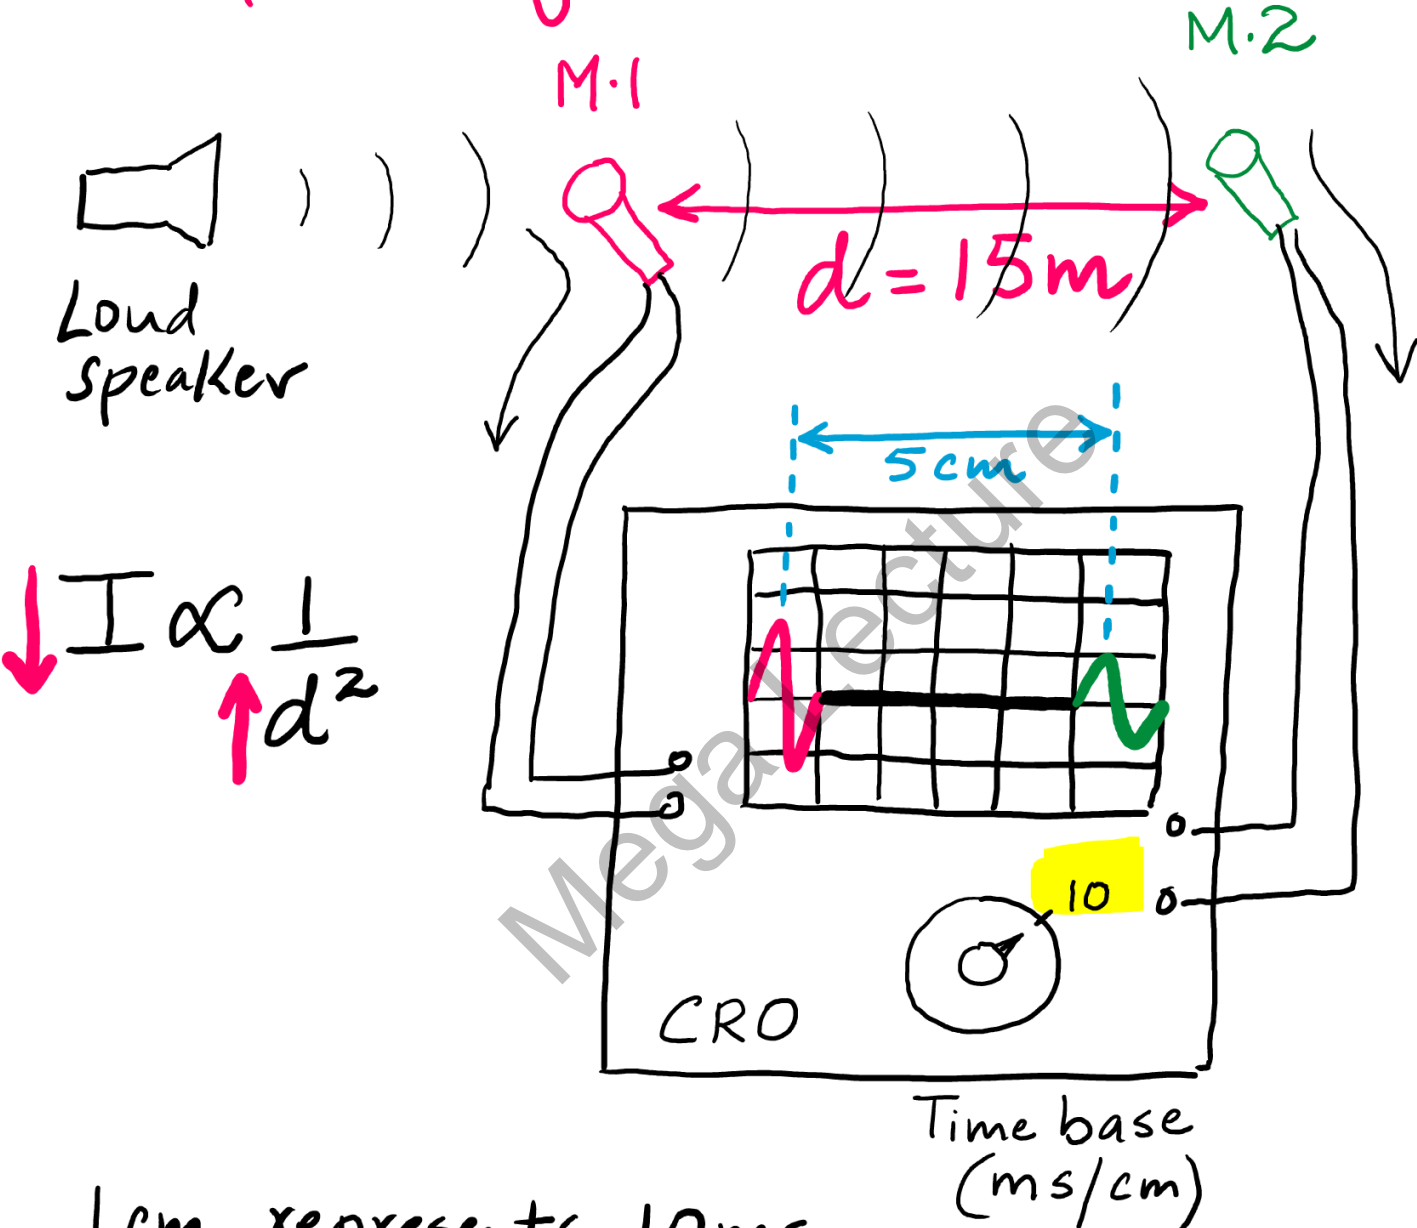 M.1
M.2
d = 15m
Loud
speaker
5cm
I ∝ 1/d²
Mega Lecture
10
CRO
Time base
(ms/cm)
1cm represents 10ms